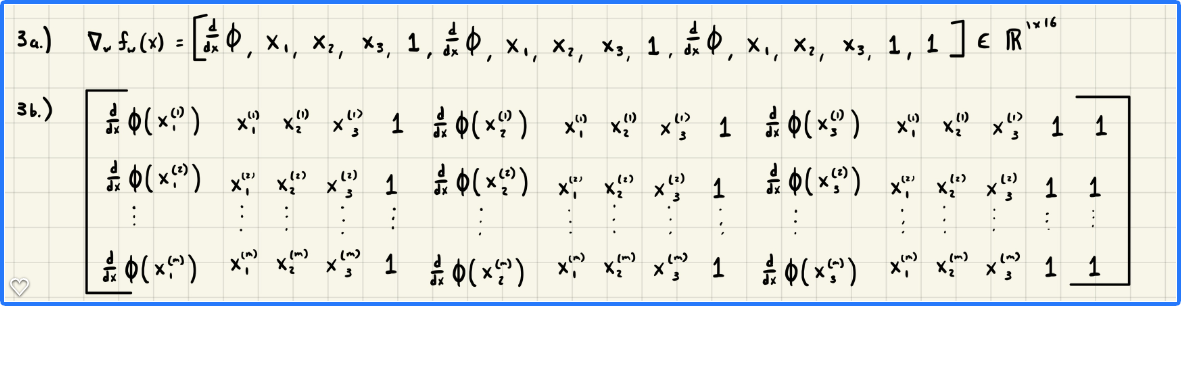 3a.) ∇ᵥ fᵥ(x) = [ d/dx ϕ, x₁, x₂, x₃, 1, d/dx ϕ, x₁, x₂, x₃, 1, d/dx ϕ, x₁, x₂, x₃, 1, 1 ] ∈ ℝ^{1×16}
3b.) [ d/dx ϕ(x₁^{(1)}) x₁^{(1)} x₂^{(1)} x₃^{(1)} 1 d/dx ϕ(x₂^{(1)}) x₁^{(1)} x₂^{(1)} x₃^{(1)} 1 d/dx ϕ(x₃^{(1)}) x₁^{(1)} x₂^{(1)} x₃^{(1)} 1 1
d/dx ϕ(x₁^{(2)}) x₁^{(2)} x₂^{(2)} x₃^{(2)} 1 d/dx ϕ(x₂^{(2)}) x₁^{(2)} x₂^{(2)} x₃^{(2)} 1 d/dx ϕ(x₃^{(2)}) x₁^{(2)} x₂^{(2)} x₃^{(2)} 1 1
⋮ ⋮ ⋮ ⋮ ⋮ ⋮ ⋮ ⋮ ⋮ ⋮ ⋮ ⋮ ⋮ ⋮ ⋮ ⋮
d/dx ϕ(x₁^{(m)}) x₁^{(m)} x₂^{(m)} x₃^{(m)} 1 d/dx ϕ(x₂^{(m)}) x₁^{(m)} x₂^{(m)} x₃^{(m)} 1 d/dx ϕ(x₃^{(m)}) x₁^{(m)} x₂^{(m)} x₃^{(m)} 1 1 ]